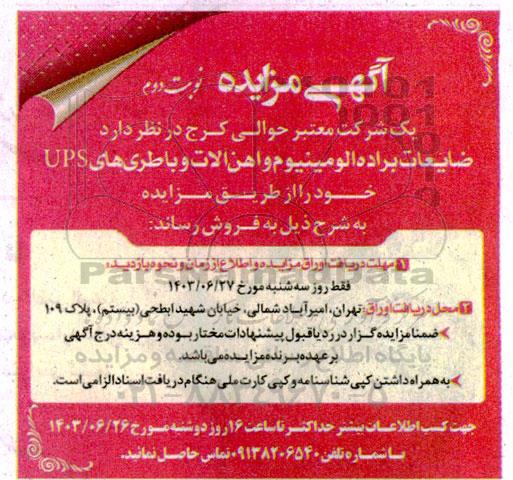 آگهی مزایده نوبت دوم
یک شرکت معتبر حوالی کرج در نظر دارد
ضایعات براده الومینیوم و اهن الات و باطری های UPS
خود را از طریق مزایده
به شرح ذیل به فروش رساند:
۱ مهلت دریافت اوراق مزایده و اطلاع از زمان و نحوه بازدید:
فقط روز سه شنبه مورخ ۱۴۰۳/۰۶/۲۷
۲ محل دریافت اوراق: تهران، امیرآباد شمالی، خیابان شهید ابطحی (بیستم)، پلاک ۱۰۹
ضمنا مزایده گزار در رد یا قبول پیشنهادات مختار بوده و هزینه درج آگهی
بر عهده برنده مزایده می باشد.
به همراه داشتن کپی شناسنامه و کپی کارت ملی هنگام دریافت اسناد الزامی است.
جهت کسب اطلاعات بیشتر حداکثر تا ساعت ۱۶ روز دوشنبه مورخ ۱۴۰۳/۰۶/۲۶
با شماره تلفن ۰۹۱۳۸۲۰۶۵۴۰ تماس حاصل نمائید.